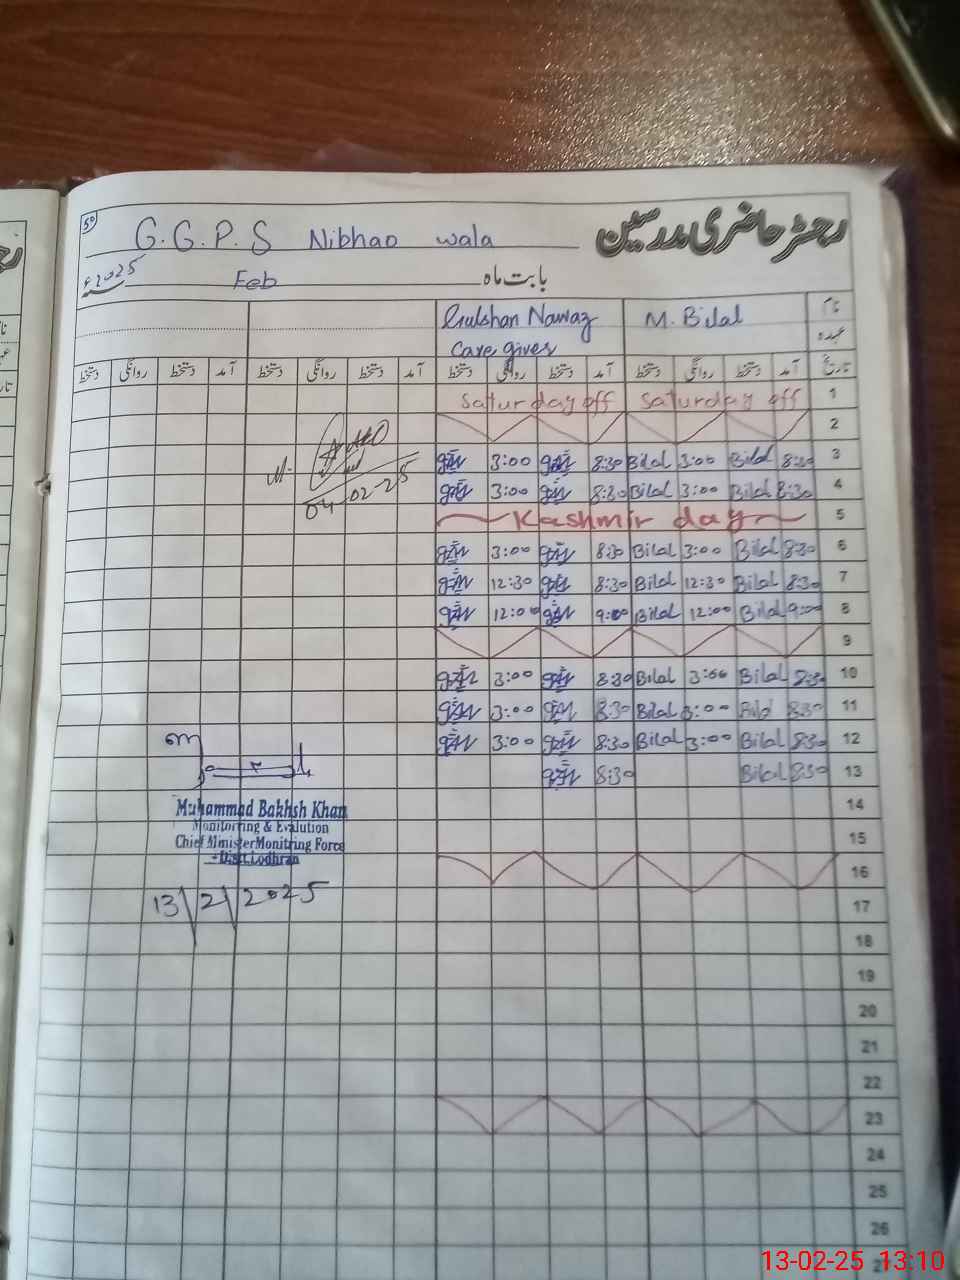 50
رجسٹر حاضری مدرسین
G.G.P.S Nibhao wala
بابت ماہ Feb 2025ء
نام Gulshan Nawaz M. Bilal
عہدہ Care giver
تاریخ آمد دستخط روانگی دستخط آمد دستخط روانگی دستخط آمد دستخط روانگی دستخط آمد دستخط روانگی دستخط
Saturday off Saturday off 1
2
3:00 8:30 Bilal 3:00 Bilal 8:30 3
3:00 8:30 Bilal 3:00 Bilal 8:30 4
04-02-25
Kashmir day 5
3:00 8:30 Bilal 3:00 Bilal 8:30 6
12:30 8:30 Bilal 12:30 Bilal 8:30 7
12:00 9:00 Bilal 12:00 Bilal 9:00 8
9
3:00 8:30 Bilal 3:00 Bilal 8:30 10
3:00 8:30 Bilal 3:00 Bilal 8:30 11
3:00 8:30 Bilal 3:00 Bilal 8:30 12
8:30 Bilal 8:30 13
Muhammad Bakhsh Khan
Monitoirring & Evalution
Chief MinisterMonitring Force
Distt.Lodhran
13/2/2025
14
15
16
17
18
19
20
21
22
23
24
25
26
27
13-02-25 13:10